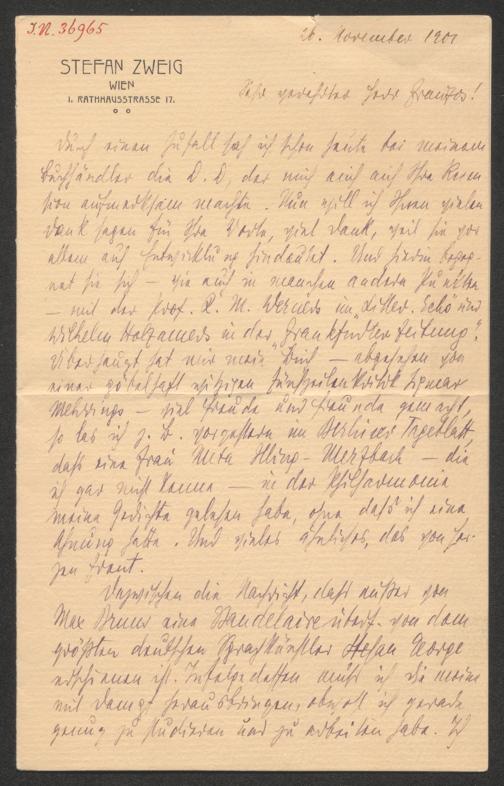 I.N. 36965
26. November 1901
STEFAN ZWEIG
WIEN
I. RATHHAUSSTRASSE 17.
Sehr verehrter Herr Franzos!
Durch einen Zufall sah ich schon heute bei meinem
Buchhändler die D. D, der mich auch auf Ihre Recen
sion aufmerksam machte. Nun will ich Ihnen vielen
Dank sagen für Ihre Worte, viel Dank, weil sie vor
allem auf Entwicklung hindeutet. Und hierin begeg-
net sie sich – wie auch in manchen andern Punkten
– mit der Prof. R. M. Werners im „Litter. Echo und
Wilhelm Holzamers in der „Frankfurter Zeitung".
Überhaupt hat mir mein Buch – abgesehen von
einer pöbelhaft witzigen Fünfzeilenkritik Sigmar
Mehrings – viel Freude und Freunde gemacht,
so las ich z. B. vorgestern im Berliner Tageblatt,
daß eine Frau Meta Illing-Merzbach – die
ich gar nicht kenne – in der Philharmonie
meine Gedichte gelesen habe, ohne daß ich eine
Ahnung habe. Und vieles ähnliches, das von Her-
zen freut.
Inzwischen die Nachricht, daß außer von
Max Bruns eine Baudelaireübers. von dem
größten deutschen Sprachkünstler Stefan George
erschienen ist. Infolgedessen muß ich die meine
mit Dampf herausbringen, obwohl ich gerade
genug zu studieren und zu arbeiten habe. Ich